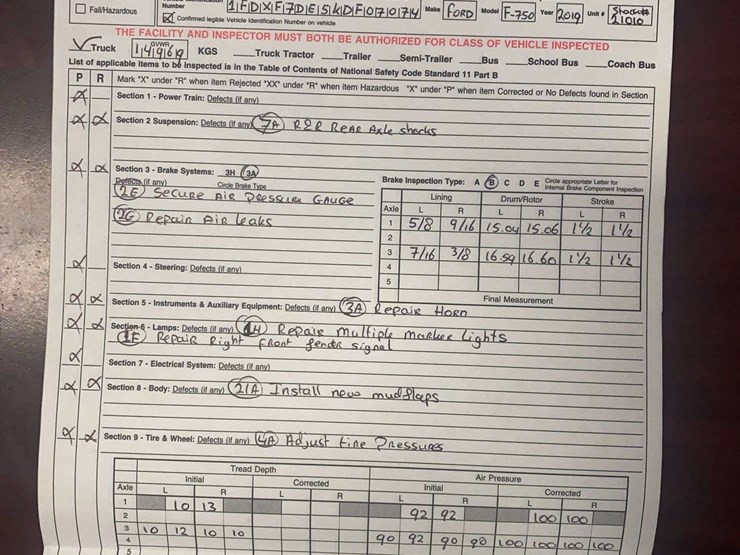 Fail/Hazardous
Number 1FDXF7DE5KDF07074 Make FORD Model F-750 Year 2019 Unit # Stock# 21010
Confirmed legible Vehicle Identification Number on vehicle
THE FACILITY AND INSPECTOR MUST BOTH BE AUTHORIZED FOR CLASS OF VEHICLE INSPECTED
Truck GVWR 14969 KGS Truck Tractor Trailer Semi-Trailer Bus School Bus Coach Bus
List of applicable items to be inspected is in the Table of Contents of National Safety Code Standard 11 Part B
P R Mark "X" under "R" when item Rejected "XX" under "R" when item Hazardous "X" under "P" when item Corrected or No Defects found in Section
X Section 1 - Power Train: Defects (if any)
X X Section 2 Suspension: Defects (if any) 7A R&R Rear Axle shocks
X X Section 3 - Brake Systems: 3H 3A
Defects (if any) Circle Brake Type
Brake Inspection Type: A B C D E Circle appropriate Letter for Internal Brake Component Inspection
2E Secure Air Pressure Gauge
2G Repair Air leaks
Lining Drum/Rotor Stroke
Axle L R L R L R
1 5/8 9/16 15.04 15.06 1 1/2 1 1/2
2
3 7/16 3/8 16.59 16.60 1 1/2 1 1/2
4
5
Final Measurement
X Section 4 - Steering: Defects (if any)
X X Section 5 - Instruments & Auxiliary Equipment: Defects (if any) 3A Repair Horn
X X Section 6 - Lamps: Defects (if any) 1H Repair Multiple marker Lights
1E Repair Right front fender signal
X Section 7 - Electrical System: Defects (if any)
X X Section 8 - Body: Defects (if any) 21A Install new mudflaps
X X Section 9 - Tire & Wheel: Defects (if any) 4A Adjust tire Pressures
Tread Depth Air Pressure
Initial Corrected Initial Corrected
Axle L R L R L R L R
1 10 13 92 92 100 100
2
3 10 12 10 10 90 92 90 90 100 100 100 100
4
5